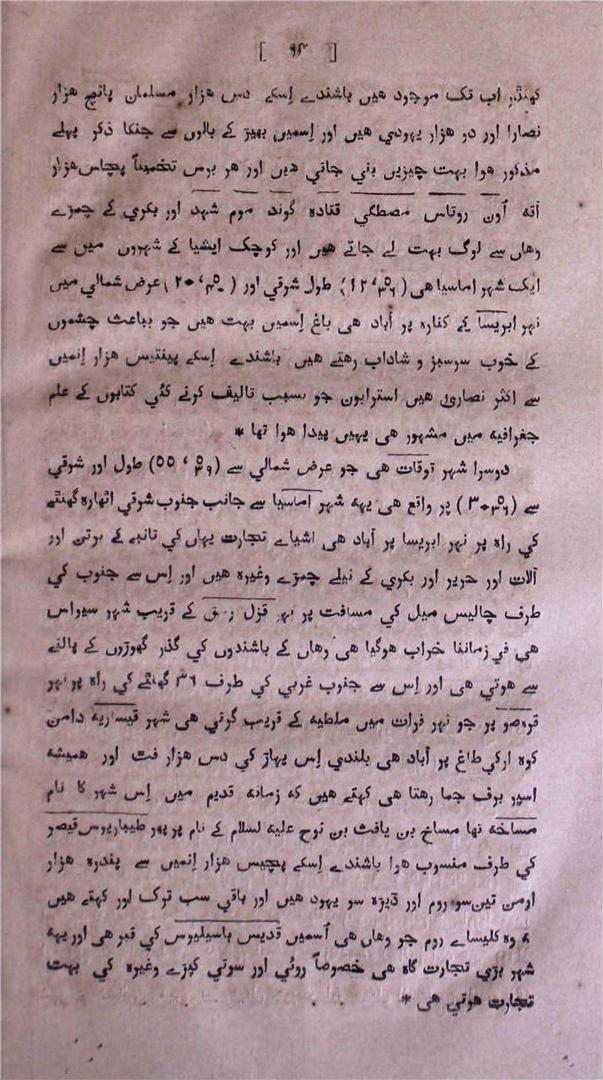 [ ٩٤ ]
کهنڈر اب تک موجود هیں باشندے اِسکے دس هزار مسلمان پانچ هزار
نصارا اور دو هزار یهودي هیں اور اِسمیں بهیڑ کے بالوں سے جنکا ذکر پہلے
مذکور هوا بهت چیزیں بني جاتي هیں اور هر برس تخمیناً پچاس هزار
اُتّه اُون روناس مصطگي قتاده گوند موم شهد اور بکري کے چمڑے
وهاں سے لوگ بهت لے جاتے هیں اور کوچک ایشیا کے شهروں میں سے
ایک شهر اماسیا هی طول شرقي اور عرض شمالي میں
نهر ابریسا کے کناره پر آباد هی باغ اِسمیں بهت هیں جو بباعث چشموں
کے خوب سرسبز و شاداب رهتے هیں باشندے اِسکے پینتیس هزار اِنمیں
سے اکثر نصاریٰ هیں استرابون جو بسبب تالیف کرنے کئي کتابوں کے علم
جغرافیه میں مشهور هی یهیں پیدا هوا تها *
دوسرا شهر توقات هی جو عرض شمالي سے طول اور شرقي
سے پر واقع هی یهه شهر اماسیا سے جانب جنوب شرقي اٹهاره گهنٹے
کي راه پر نهر ابریسا پر آباد هی اشیاے تجارت یهاں کي تانبے کے برتن اور
آلات اور حریر اور بکري کے نیلے چمڑے وغیره هیں اور اِس سے جنوب کي
طرف چالیس میل کي مسافت پر نهر قزل کے قریب شهر سیواس
هی في زماننا خراب هوگیا هی وهاں کے باشندوں کي گذر گهوڑوں کے پالنے
سے هوتي هی اور اِس سے جنوب غربي کي طرف ٣٦ گهنٹے کي راه پر نهر
قره صو پر جو نهر فرات میں ملطیه کے قریب گرتي هی شهر قیساریه دامن
کوه ارکي طاغ پر آباد هی بلندي اِس پهاڑ کي دس هزار فت اور همیشه
اسپر برف جما رهتا هی کهتے هیں که زمانه قدیم میں اِس شهر کا نام
مساخه تها مساخ بن یافث بن نوح علیه لسلام کے نام پر پهر طیباریوس قیصر
کي طرف منسوب هوا باشندے اِسکے پچیس هزار اِنمیں سے پندره هزار
ارمن تین سو روم اور ڈیڑه سو یهود هیں اور باقي سب ترک اور کهتے هیں
که وه کلیساے روم جو وهاں هی اُسمیں قدیس باسیلیوس کي قبر هی اور یهه
شهر بڑي تجارت گاه هی خصوصاً روئي اور سوتي کپڑے وغیره کي بهت
تجارت هوتي هی *